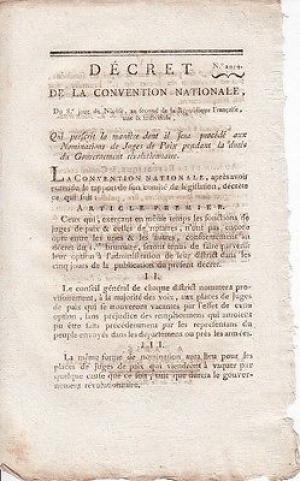 DÉCRET
DE LA CONVENTION NATIONALE,
Du 8.e jour de Nivôse, an second de la République Française,
une & indivisible,
Qui prescrit la manière dont il sera procédé aux
Nominations de Juges de Paix pendant la durée
du Gouvernement révolutionnaire.
LA CONVENTION NATIONALE, après avoir
entendu le rapport de son comité de législation, décrète
ce qui suit :
ARTICLE PREMIER.
Ceux qui, exerçant en même temps les fonctions
de juges de paix & celles de notaires, n'ont pas encore
opté entre les unes & les autres, conformément au
décret du brumaire, seront tenus de faire parvenir
leur option à l'administration de leur district dans les
cinq jours de la publication du présent décret.
II.
Le conseil général de chaque district nommera pro-
visoirement, à la majorité des voix, aux places de juges
de paix qui se trouveront vacantes par l'effet de cette
option, sans préjudice des remplacemens qui auroient
pu être faits précédemment par les représentans du
peuple envoyés dans les départemens ou près les armées.
III.
La même forme de nomination aura lieu pour les
places de juges de paix qui viendront à vaquer par
quelque cause que ce soit, tant que durera le gouver-
nement révolutionnaire.